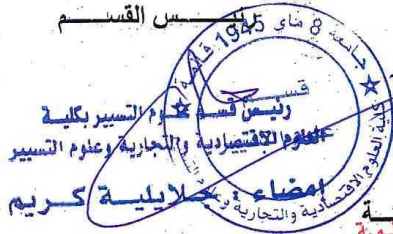 رئيـــس القســـم
جامعة 8 ماي 1945 قالمة
قســم
رئيس قسم علوم التسيير بكلية
العلوم الاقتصادية والتجارية وعلوم التسيير
امضاء : جلايليـة كـريم
كلية العلوم الاقتصادية والتجارية وعلوم